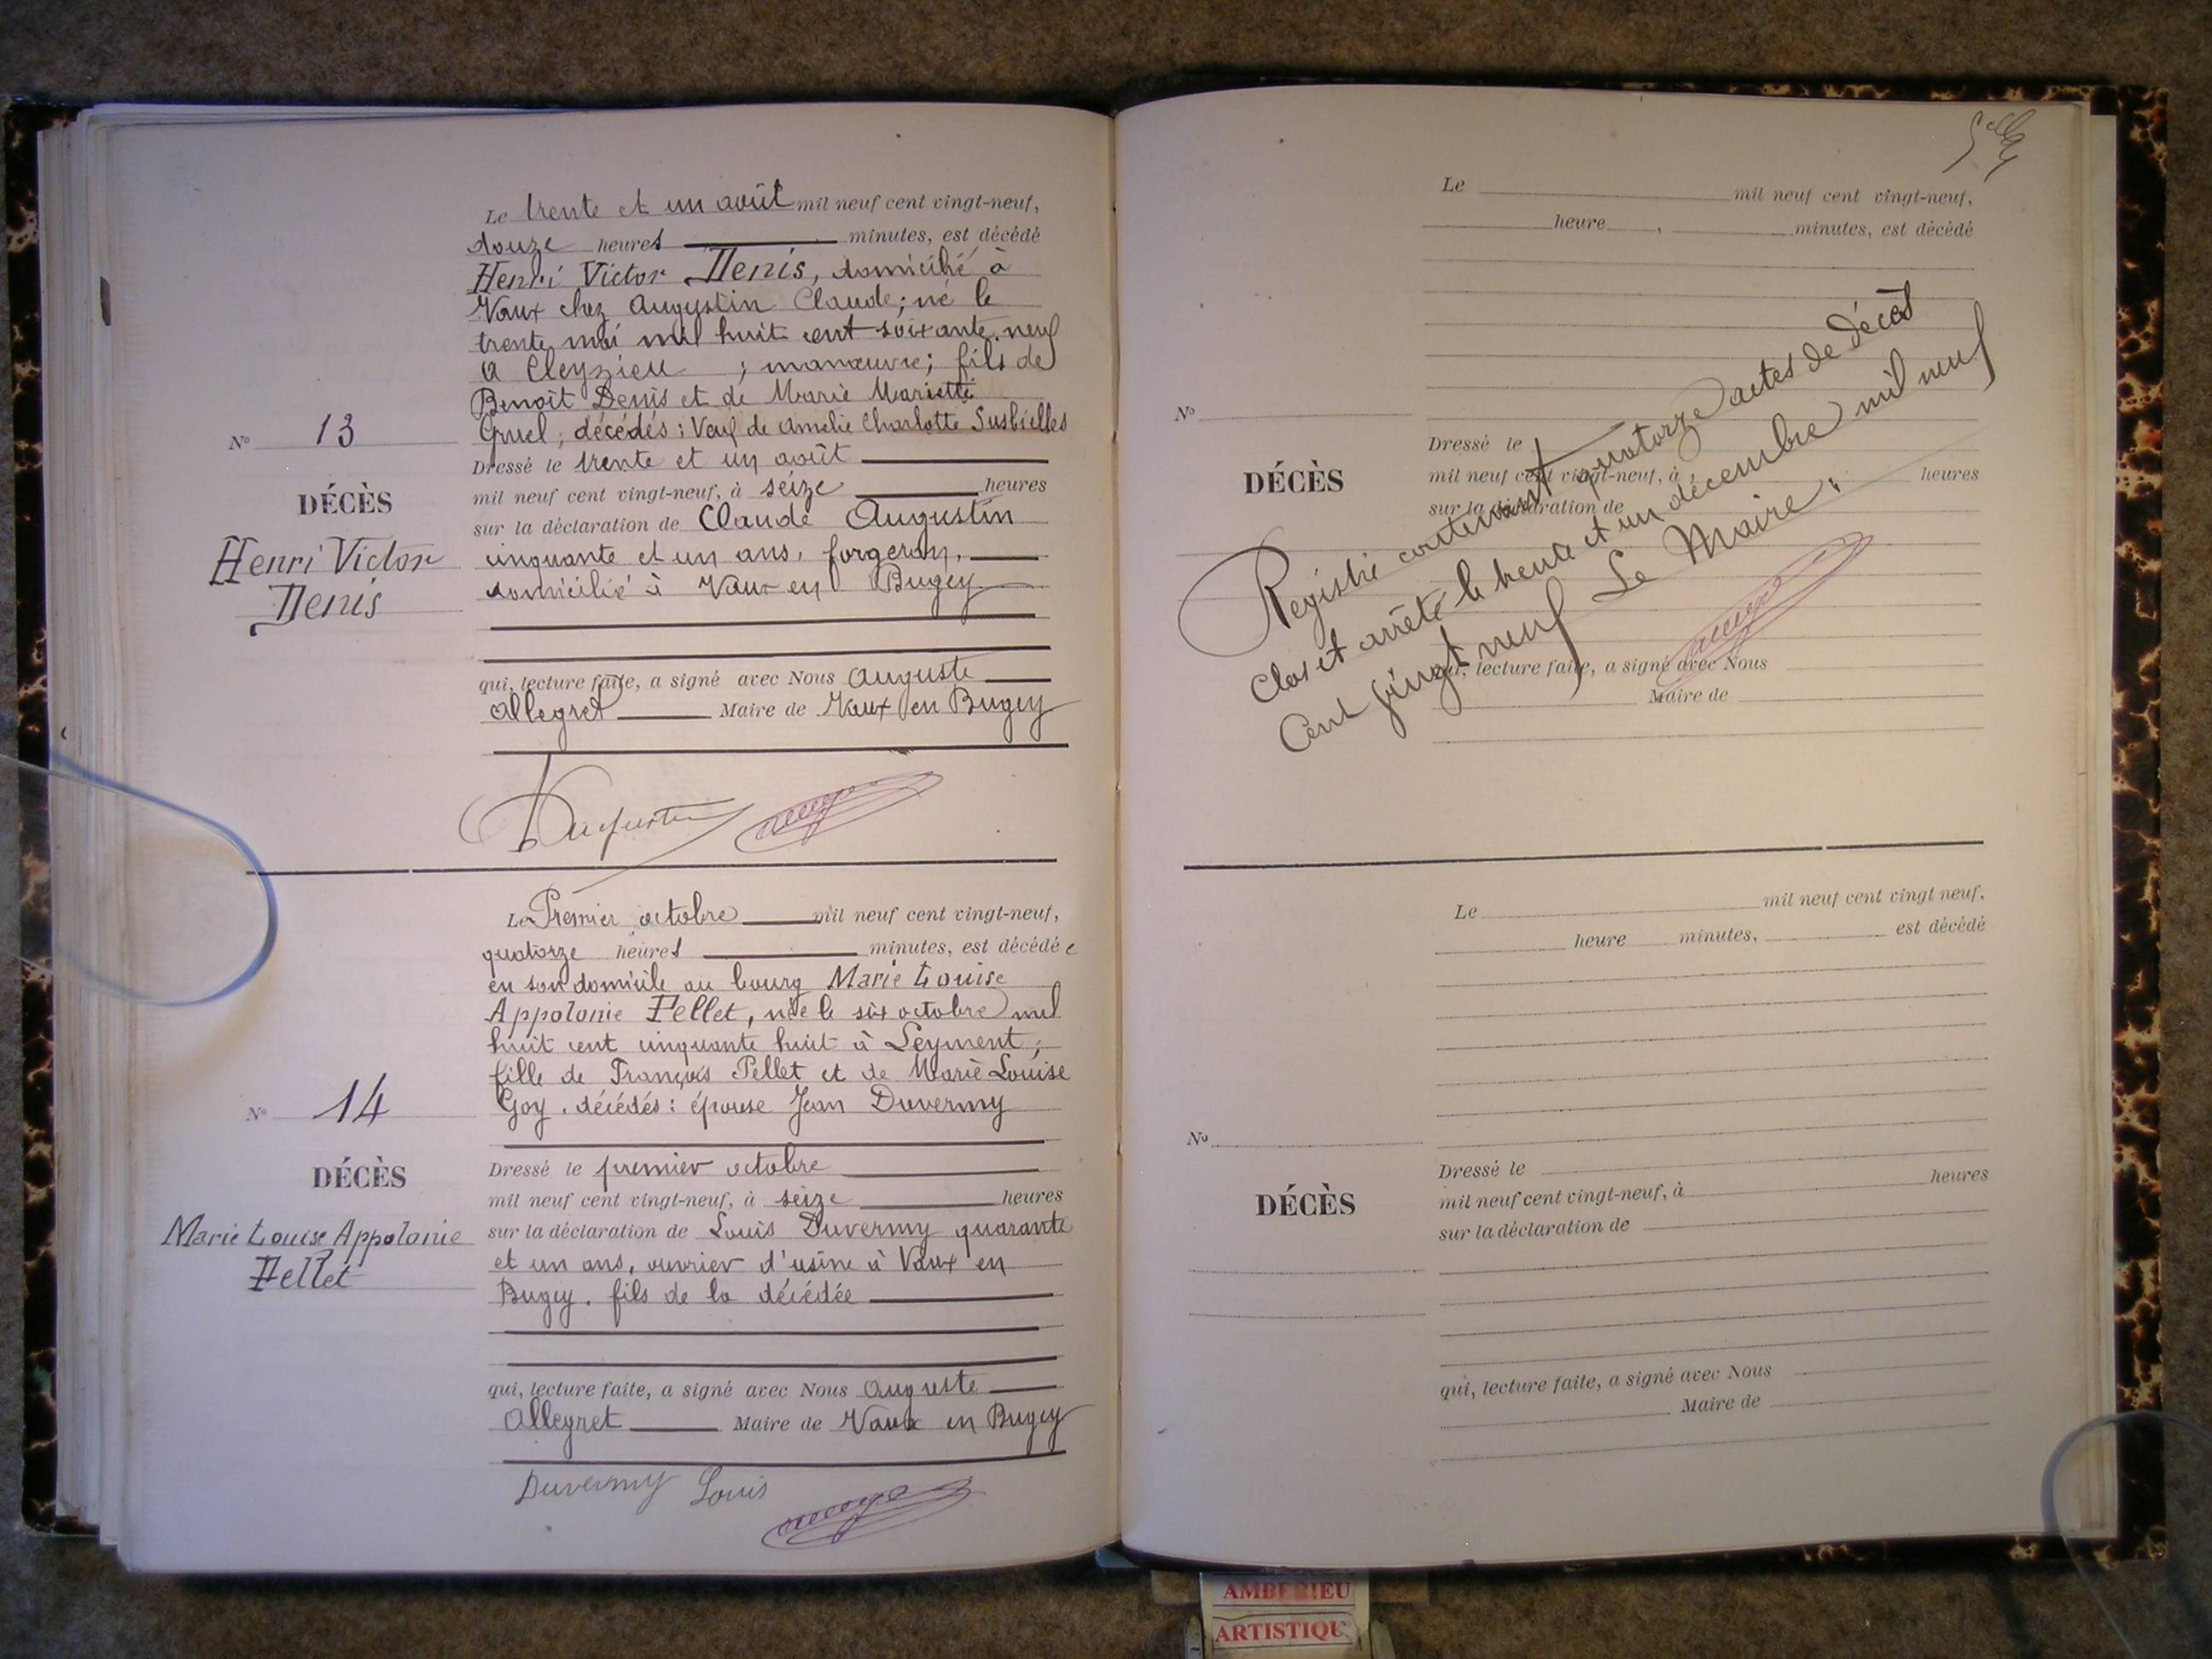 Le trente et un août mil neuf cent vingt-neuf,
douze heures minutes, est décédé
Henri Victor Denis, domicilié à
Vaux chez Augustin Claude; né le
trente mai mil huit cent soixante neuf
à Cleyzieu ; manœuvre; fils de
Benoît Denis et de Marie Mariette
Gruel; décédés; Veuf de Amélie Charlotte Susbielles
N° 13
DÉCÈS
Henri Victor
Denis
Dressé le trente et un août
mil neuf cent vingt-neuf, à seize heures
sur la déclaration de Claude Augustin
cinquante et un ans, forgeron,
domicilié à Vaux en Bugey
qui, lecture faite, a signé avec Nous Auguste
Allegret Maire de Vaux en Bugey
Augustin
Le Premier octobre mil neuf cent vingt-neuf,
quatorze heures minutes, est décédée
en son domicile au bourg Marie Louise
Appolonie Pellet, née le six octobre mil
huit cent cinquante huit à Leyment;
fille de François Pellet et de Marie Louise
Goy, décédés: épouse Jean Duvermy
N° 14
DÉCÈS
Marie Louise Appolonie
Pellet
Dressé le premier octobre
mil neuf cent vingt-neuf, à seize heures
sur la déclaration de Louis Duvermy quarante
et un ans, ouvrier d'usine à Vaux en
Bugey, fils de la décédée
qui, lecture faite, a signé avec Nous Auguste
Allegret Maire de Vaux en Bugey
Duvermy Louis
Le mil neuf cent vingt-neuf,
heure , minutes, est décédé
N°
DÉCÈS
Dressé le
mil neuf cent vingt-neuf, à heures
sur la déclaration de
qui, lecture faite, a signé avec Nous
Maire de
Registre contenant quatorze actes de décès
Clos et arrêté le trente et un décembre mil neuf
Cent vingt neuf Le Maire:
Le mil neuf cent vingt neuf,
heure minutes, est décédé
N°
DÉCÈS
Dressé le
mil neuf cent vingt-neuf, à heures
sur la déclaration de
qui, lecture faite, a signé avec Nous
Maire de
AMBERIEU
ARTISTIQU